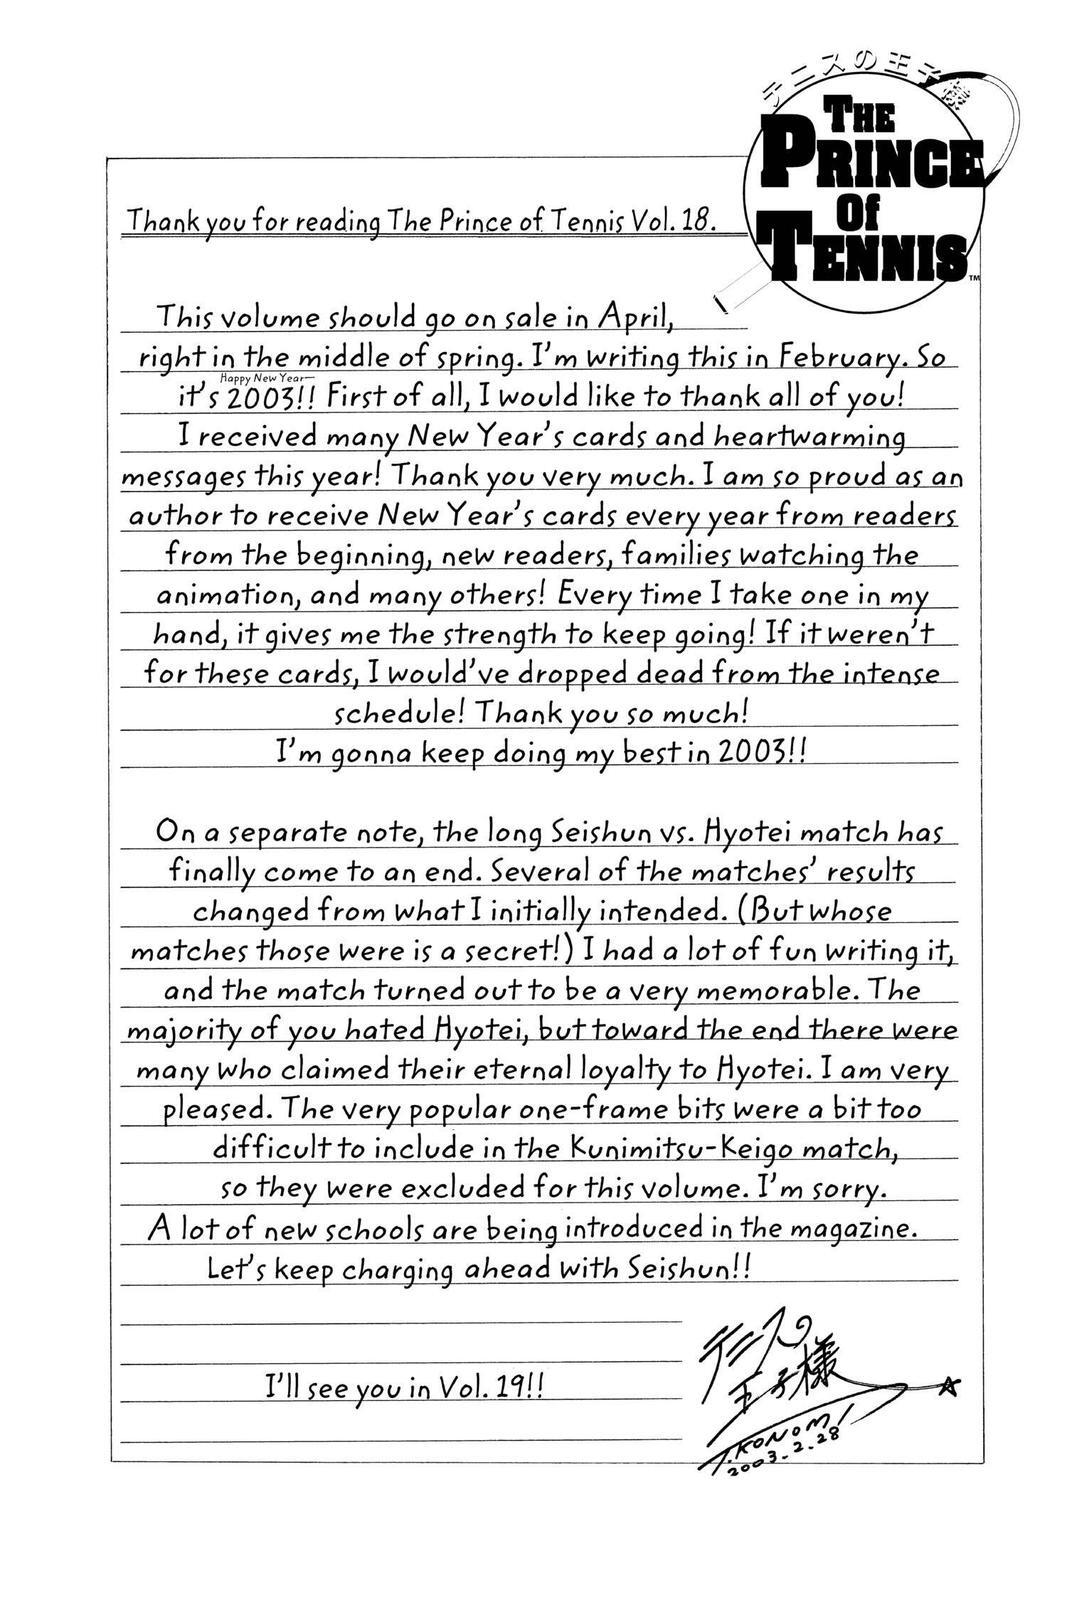 テニスの王子様
THE
PRINCE
OF
TENNIS™
Thank you for reading The Prince of Tennis Vol. 18.
This volume should go on sale in April,
right in the middle of spring. I'm writing this in February. So
Happy New Year—
it's 2003!! First of all, I would like to thank all of you!
I received many New Year's cards and heartwarming
messages this year! Thank you very much. I am so proud as an
author to receive New Year's cards every year from readers
from the beginning, new readers, families watching the
animation, and many others! Every time I take one in my
hand, it gives me the strength to keep going! If it weren't
for these cards, I would've dropped dead from the intense
schedule! Thank you so much!
I'm gonna keep doing my best in 2003!!
On a separate note, the long Seishun vs. Hyotei match has
finally come to an end. Several of the matches' results
changed from what I initially intended. (But whose
matches those were is a secret!) I had a lot of fun writing it,
and the match turned out to be a very memorable. The
majority of you hated Hyotei, but toward the end there were
many who claimed their eternal loyalty to Hyotei. I am very
pleased. The very popular one-frame bits were a bit too
difficult to include in the Kunimitsu-Keigo match,
so they were excluded for this volume. I'm sorry.
A lot of new schools are being introduced in the magazine.
Let's keep charging ahead with Seishun!!
I'll see you in Vol. 19!!
テニスの
王子様
T.KONOMI
2003.2.28